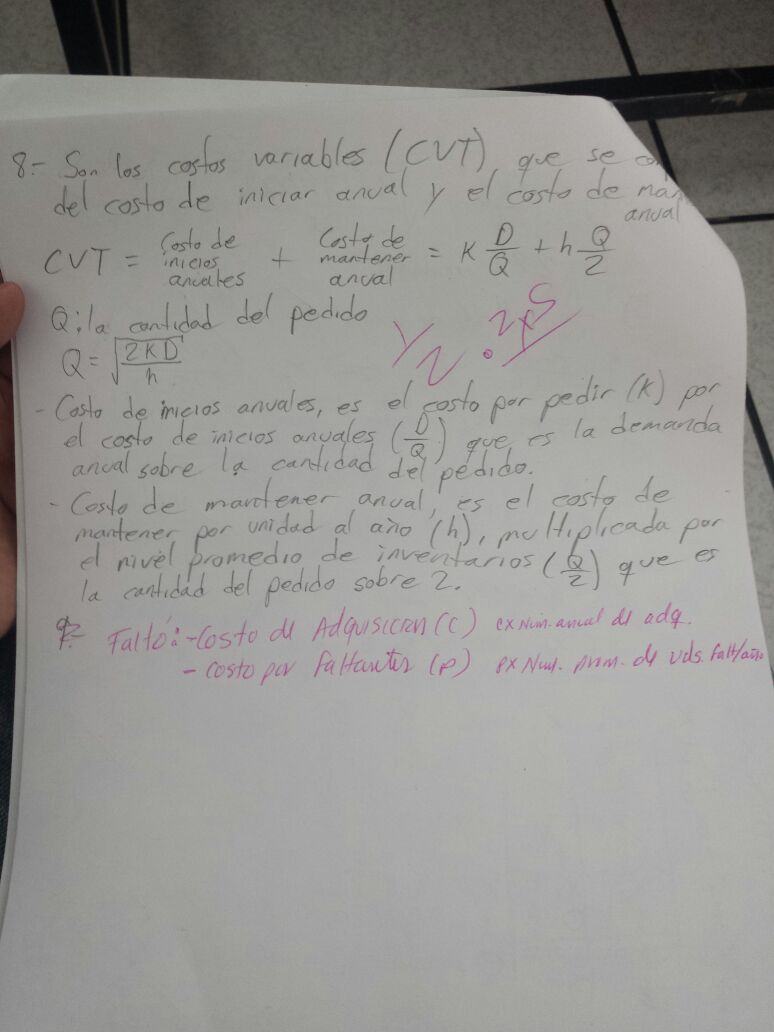 8.- Son los costos variables (CVT) que se
del costo de iniciar anual y el costo de
anual
CVT = Costo de inicios anuales + Costo de mantener anual = K D/Q + h Q/2
Q: la cantidad del pedido
Q = √(2KD/h)
- Costo de inicios anuales, es el costo por pedir (K) por
el costo de inicios anuales (D/Q) que es la demanda
anual sobre la cantidad del pedido.
- Costo de mantener anual, es el costo de
mantener por unidad al año (h), multiplicada por
el nivel promedio de inventarios (Q/2) que es
la cantidad del pedido sobre 2.
Faltó: - Costo de Adquisicion (c) cx Num. anual de adq.
- costo por Faltantes (p) px Num. prom. de uds. falt/año